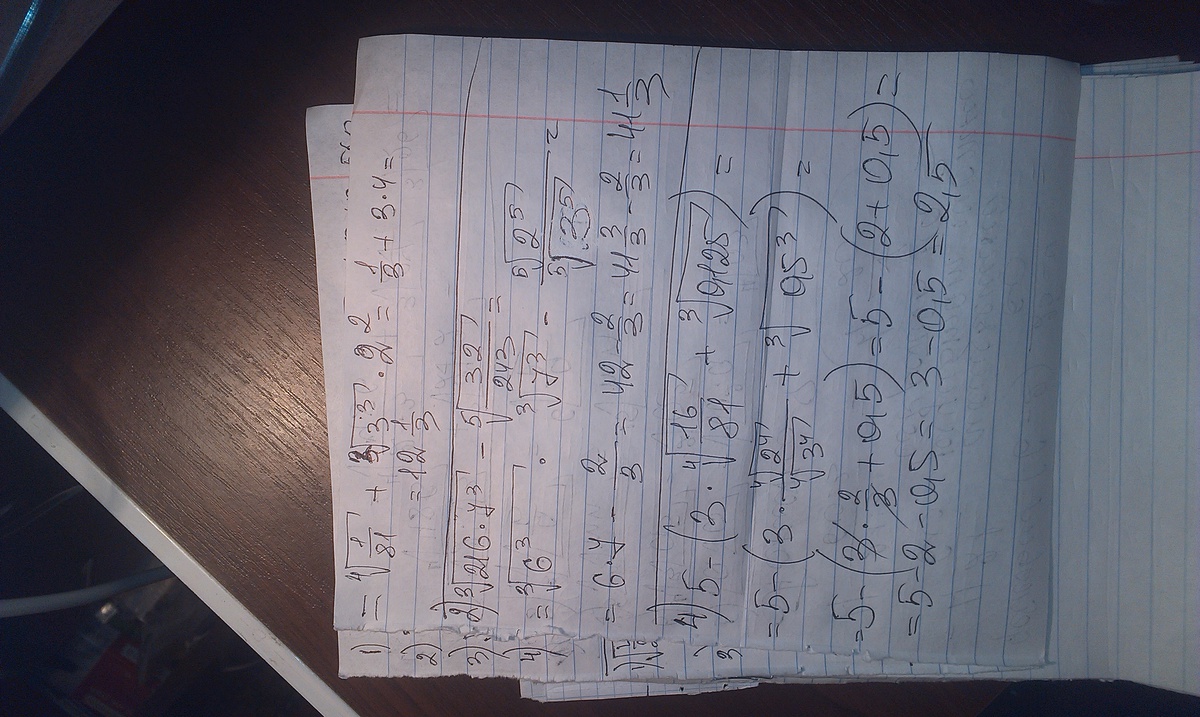 = ⁴√(1/81) + ³√(3³) · 2² = 1/3 + 3·4 =
= 12 1/3
2) ³√(216·y³) - ⁵√(32/243) =
= ³√(6³) · ³√(y³) - ⁵√(2⁵)/⁵√(3⁵) =
= 6·y - 2/3 = 42 - 2/3 = 41 3/3 - 2/3 = 41 1/3
4) 5 - (3 · ⁴√(16/81) + ³√(0,125)) =
= 5 - (3 · ⁴√(2⁴)/⁴√(3⁴) + ³√(0,5³)) =
= 5 - (3 · 2/3 + 0,5) = 5 - (2 + 0,5) =
= 5 - 2 - 0,5 = 3 - 0,5 = 2,5
1)
2)
3)
4)